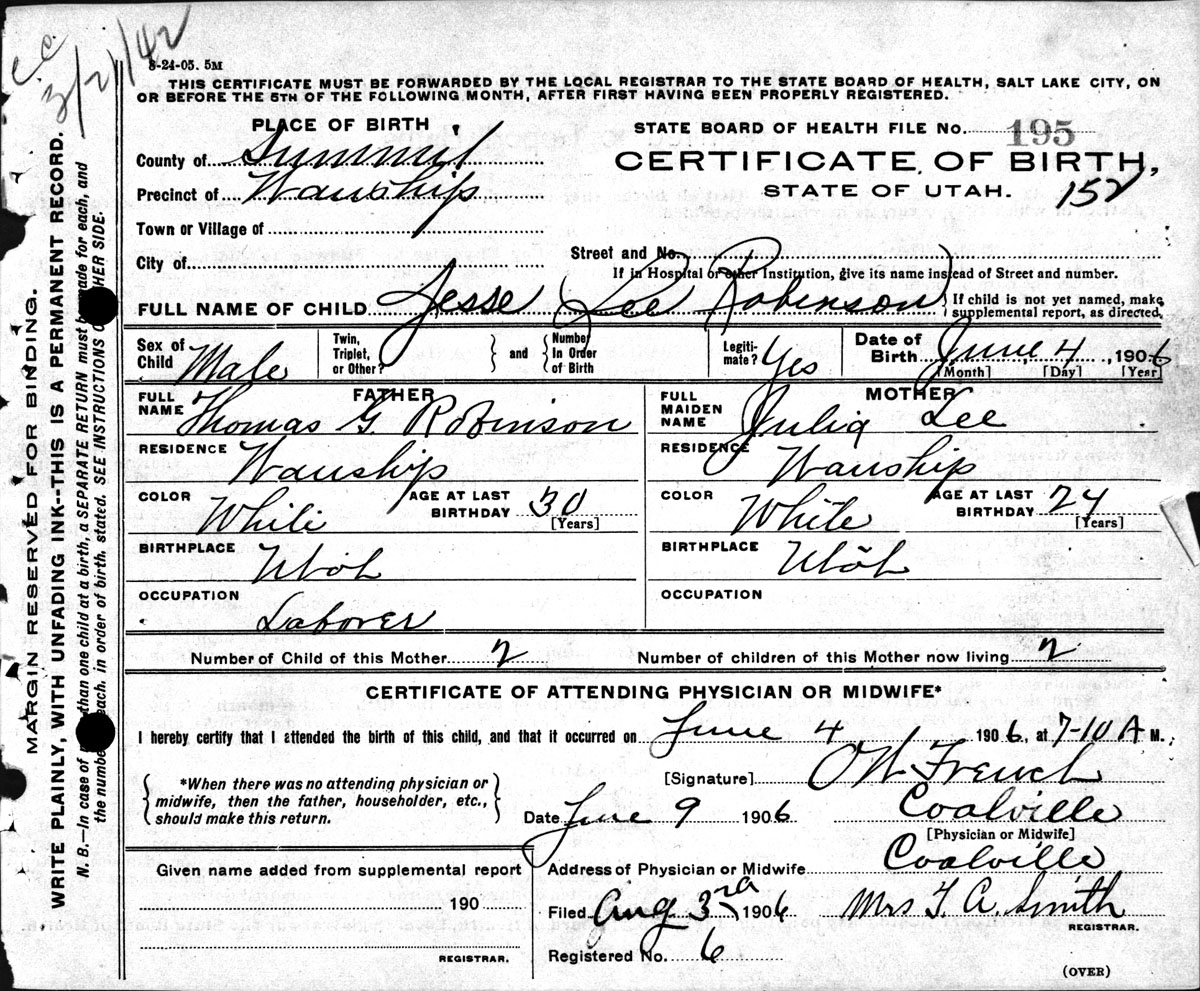 C.C.
3/21/42
8-24-05. 5M
THIS CERTIFICATE MUST BE FORWARDED BY THE LOCAL REGISTRAR TO THE STATE BOARD OF HEALTH, SALT LAKE CITY, ON
OR BEFORE THE 5TH OF THE FOLLOWING MONTH, AFTER FIRST HAVING BEEN PROPERLY REGISTERED.
PLACE OF BIRTH
County of Summit
Precinct of Wanship
Town or Village of
City of
STATE BOARD OF HEALTH FILE No. 195
CERTIFICATE OF BIRTH,
STATE OF UTAH.
152
Street and No.
If in Hospital or other Institution, give its name instead of Street and number.
FULL NAME OF CHILD Jesse (Lee Robinson) } If child is not yet named, make supplemental report, as directed.
Sex of Child Male
Twin, Triplet, or Other? } and { Number In Order of Birth
Legiti-mate? Yes
Date of Birth June 4, 1906
[Month] [Day] [Year]
FATHER
FULL NAME Thomas G. Robinson
RESIDENCE Wanship
COLOR White
AGE AT LAST BIRTHDAY 30 [Years]
BIRTHPLACE Utah
OCCUPATION Laborer
MOTHER
FULL MAIDEN NAME Julia Lee
RESIDENCE Wanship
COLOR White
AGE AT LAST BIRTHDAY 24 [Years]
BIRTHPLACE Utah
OCCUPATION
Number of Child of this Mother 2
Number of children of this Mother now living 2
CERTIFICATE OF ATTENDING PHYSICIAN OR MIDWIFE*
I hereby certify that I attended the birth of this child, and that it occurred on June 4 1906, at 7-10 A M.
{ *When there was no attending physician or
midwife, then the father, householder, etc.,
should make this return. }
[Signature] O W French
Date June 9 1906 Coalville
[Physician or Midwife]
Given name added from supplemental report
190
REGISTRAR.
Address of Physician or Midwife Coalville
Filed Aug 3rd 1906 Mrs T. A. Smith
REGISTRAR.
Registered No. 6
(OVER)
MARGIN RESERVED FOR BINDING.
WRITE PLAINLY, WITH UNFADING INK--THIS IS A PERMANENT RECORD.
N. B.—In case of than one child at a birth, a SEPARATE RETURN must be made for each, and
the number each, in order of birth, stated. SEE INSTRUCTIONS OTHER SIDE.